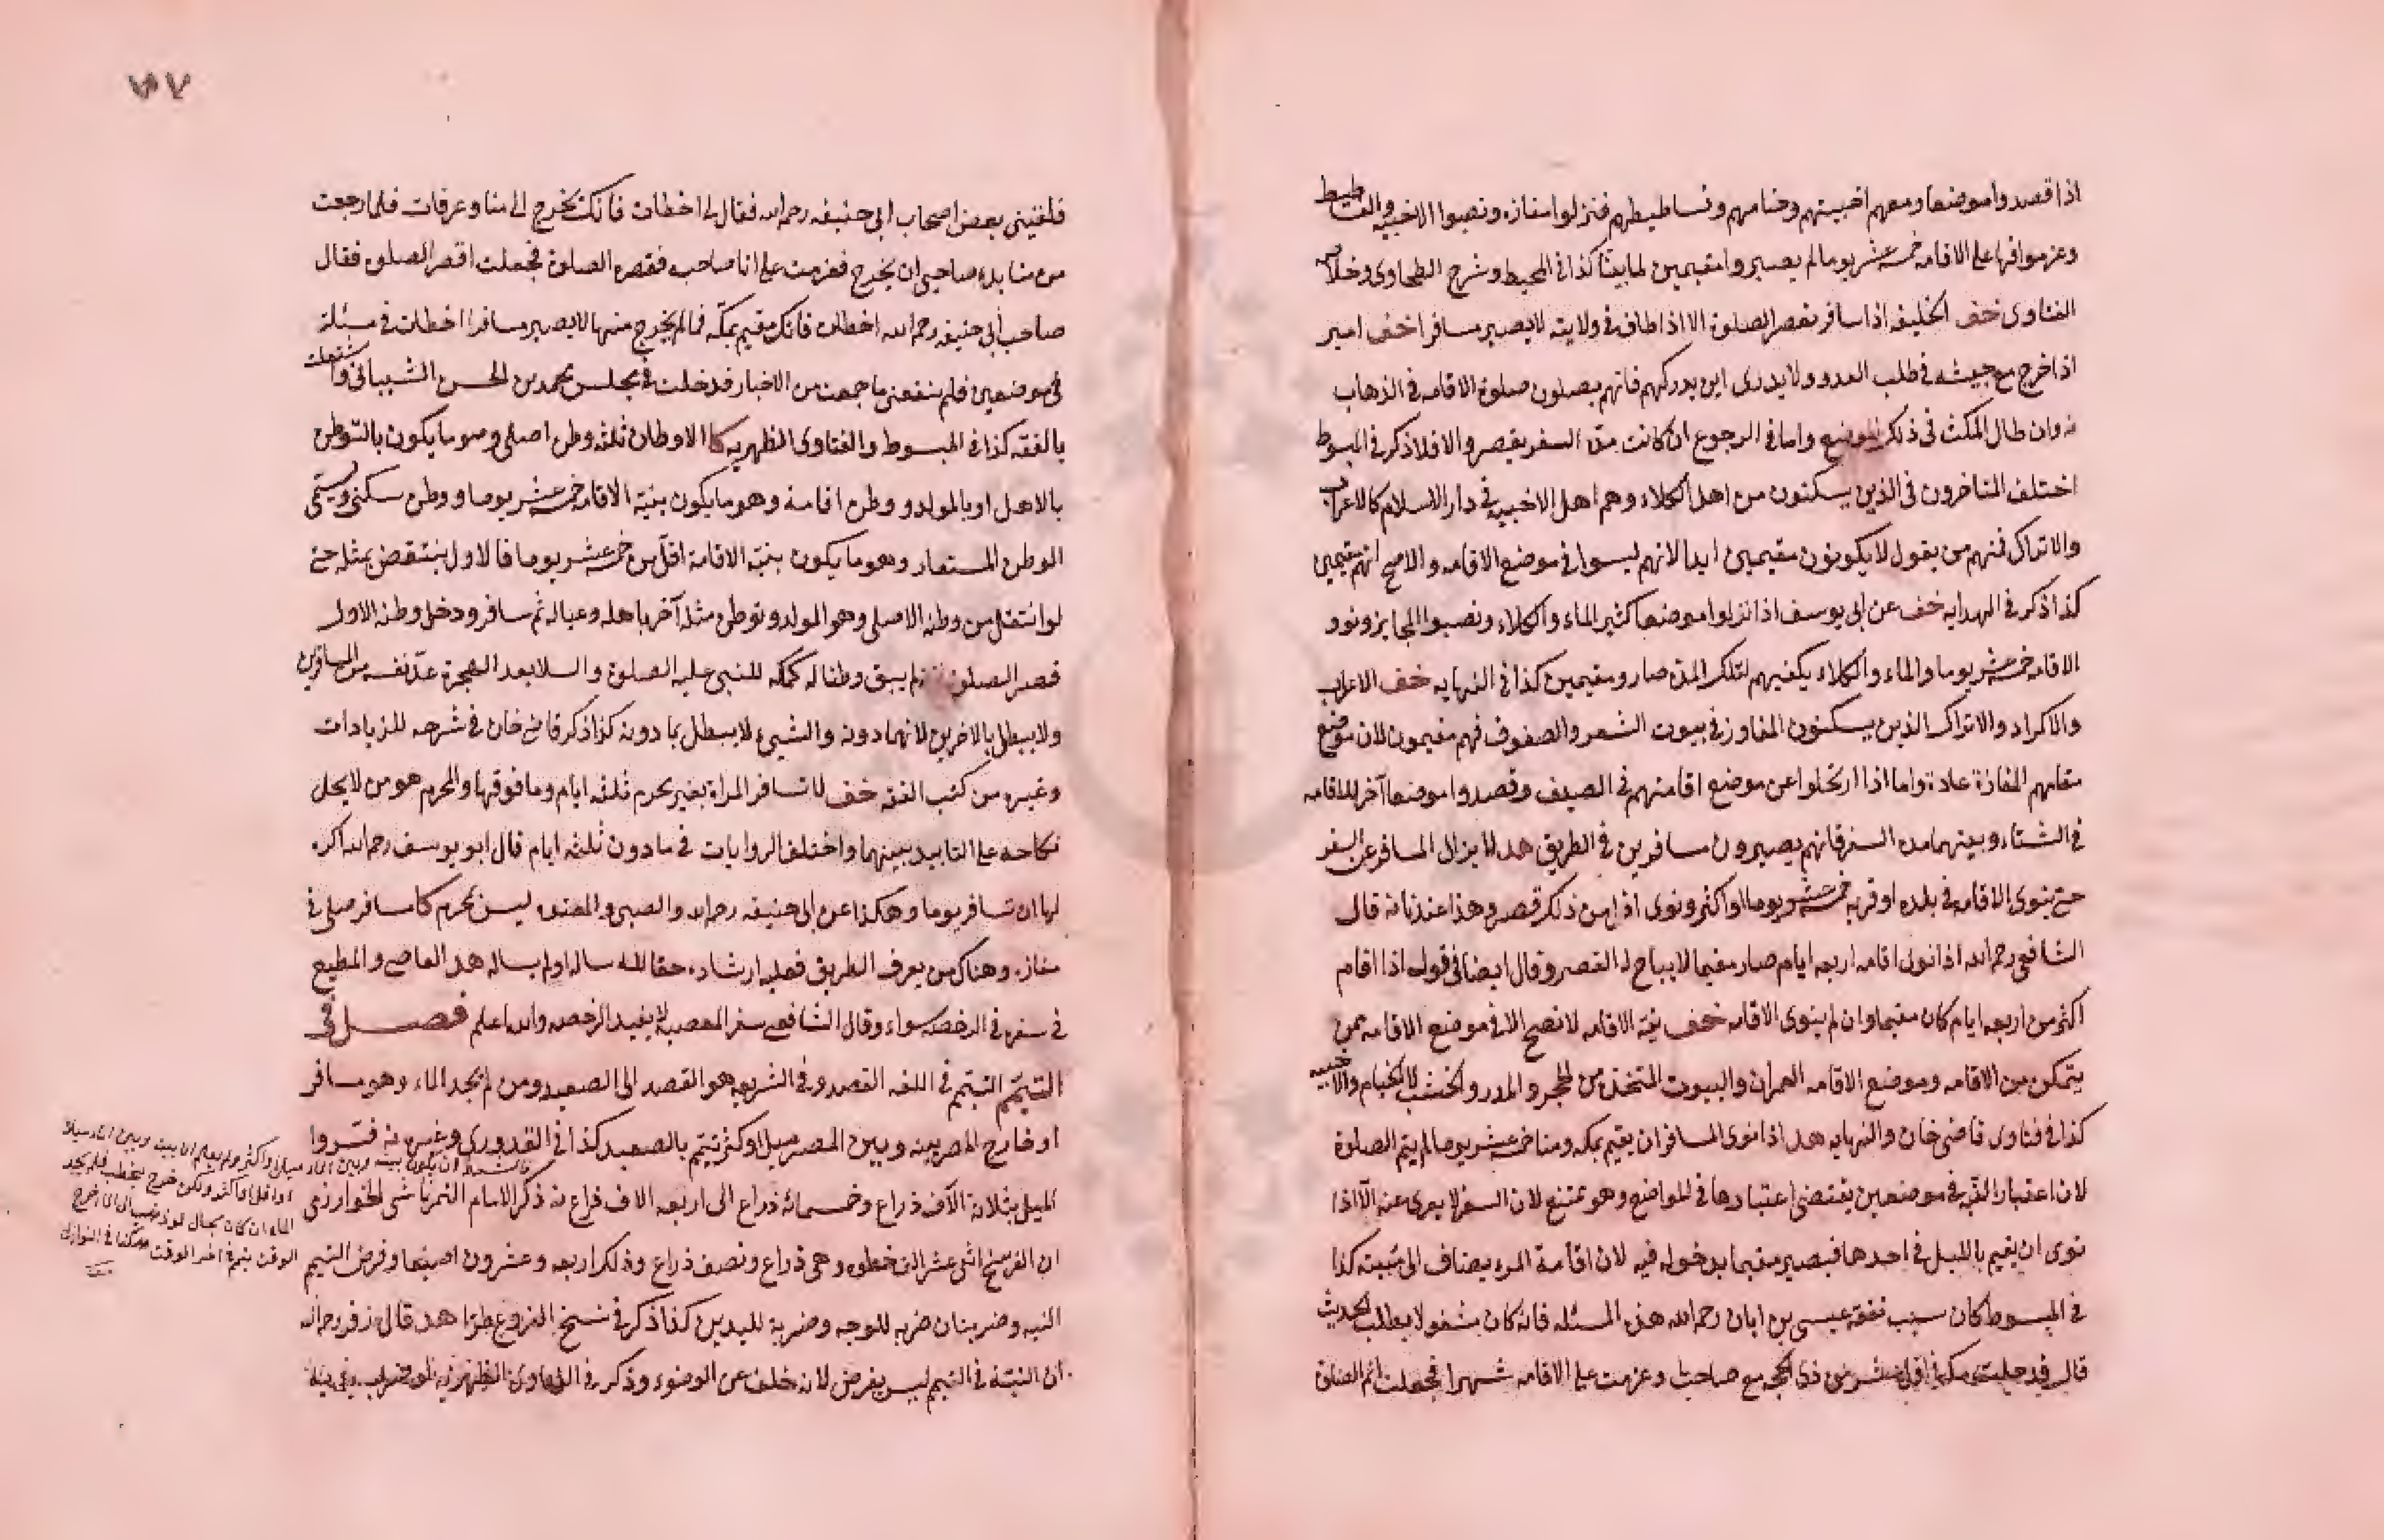 اذا قصدوا موضعا ومعهم اخبيتهم وخيامهم وفساطيطهم فنزلوا مفازه ونصبوا الاخبيه والفساطيط
وعزموا فيها على الاقامه خمسه عشر يوما لم يصيروا مقيمين لما بينا كذا فى المحيط وشرح الطحاوى وخلاصه
الفتاوى خف الخليفه اذا سافر يقصر الصلوة الا اذا طاف فى ولايته لا يصير مسافرا خف امير
اذا خرج مع جيشه فى طلب العدو ولا يدرى اين يدركهم فانهم يصلون صلوة الاقامه فى الذهاب
وان طال المكث فى ذلك الموضع واما فى الرجوع ان كانت مدة السفر يقصر والا فلا ذكر فى المبسوط
اختلف المتاخرون فى الذين يسكنون من اهل الكلاء وهم اهل الاخبيه فى دار الاسلام كالاعراب
والاتراك فمنهم من يقول لا يكونون مقيمين ابدا لانهم ليسوا فى موضع الاقامه والاصح انهم مقيمين
كذا ذكر فى الهدايه خف عن ابى يوسف اذا نزلوا موضعا كثير الماء والكلاء ونصبوا المخابز ونوو
الاقامه خمسه عشر يوما والماء والكلاء يكفيهم لتلك المدة صارو مقيمين كذا فى النهايه خف الاعراب
والاكراد والاتراك الذين يسكنون المفاوز فى بيوت الشعر والصفوف فهم مقيمون لان موضع
مقامهم المفازة عادة واما اذا ارتحلوا عن موضع اقامتهم فى الصيف وقصدوا موضعا آخر للاقامه
فى الشتاء وبينهما مدة السفر فانهم يصيرون مسافرين فى الطريق هد لا يزال المسافر على السفر
حتى ينوى الاقامه فى بلده او قريه خمسه عشر يوما او اكثر ونوى اقل من ذلك قصر وهذا عندنا فانه قال
الشافعى رحمه الله اذا نوى اقامه اربعه ايام صار مقيما لا يباح له القصر وقال ايضا فى قوله اذا اقام
اكثر من اربعه ايام كان مقيما وان لم ينوى الاقامه خف نية الاقامه لا تصح الا فى موضع الاقامه ممن
يتمكن من الاقامه وموضع الاقامه العمران والبيوت المتخذة من الحجر والمدر والخشب لا الخيام والاخبيه
كذا فى فتاوى قاضى خان والنهايه هد اذا نوى المسافر ان يقيم بمكه ومنا خمسه عشر يوما لم يتم الصلوة
لان اعتبار النيه فى موضعين يقتضى اعتبارها فى المواضع وهو ممتنع لان السفر لا يعرى عنه الّا اذا
نوى ان يقيم بالليل فى احدها فيصير مقيما بدخوله فيه لان اقامة المرء يضاف الى مبيته كذا
فى المبسوط كان سبب تفقه عيسى بن ابان رحمه الله هذه المسئله فانه كان مشغولا بطلب الحديث
قال فدخلت مكه فى اول عشر من ذى الحجه مع صاحب لى وعزمت على الاقامه شهرا فجعلت اتم الصلوة
٧
فلقينى بعض اصحاب ابى حنيفه رحمه الله فقال لى اخطات فانك تخرج الى منا وعرفات فلما رجعت
من منا بدا لصاحبى ان يخرج فعزمت على ان اصاحبه فقصر الصلوة فجعلت اقصر الصلوه فقال
صاحب أبى حنيفه رحمه الله اخطات فانك مقيم بمكه فما لم يخرج منها لا يصير مسافرا اخطات فى مسئلة
فى موضعين فلم ينفعنى ما جمعت من الاخبار فدخلت فى مجلس محمد بن الحسن الشيبانى واشتغلت
بالفقه كذا فى المبسوط والفتاوى الظهريه كا الاوطان ثلثه وطن اصلى وهو ما يكون بالتوطن
بالاهل او بالمولد و وطن اقامة وهو ما يكون بنية الاقامه خمسه عشر يوما و وطن سكنى ويسمّى
الوطن المستعار وهو ما يكون بنية الاقامة اقلّ من خمسه عشر يوما فالاول ينتقض بمثله حتى
لو انتقل من وطنه الاصلى وهو المولد وتوطن مثله آخر باهله وعياله ثم سافر ودخل وطنه الاول
قصر الصلوة لم يبق وطنا له كمكه للنبى عليه الصلوة والسلا بعد الهجرة عدّ نفسه من المسافرين
ولا يبطل بالاخرين لانهما دونه والشىء لا يبطل بما دونه كذا ذكر قاضى خان فى شرحه للزيادات
وغيره من كتب الفقه خف لا تسافر المراة بغير محرم ثلثه ايام وما فوقها والمحرم هو من لا يحل
نكاحه على التابيد بينهما واختلف الروايات فى ما دون ثلثه ايام قال ابو يوسف رحمه الله اكره
لها ان تسافر يوما وهكذا عن ابى حنيفه رحمه الله والصبى والمعتوه ليس بمحرم كا مسافر صلى فى
مفازه وهناك من يعرف الطريق فعليه ارشاده حقا لله ساله او لم يساله هد العاصى والمطيع
فى سفرها فى الرخصه سواء وقال الشافعى سفر المعصيه لا يفيد الرخصه والله اعلم فصل فى
التيمّم التيمّم فى اللغه القصد وفى الشريعه هو القصد الى الصعيد ومن لم يجد الماء وهو مسافر
او خارج المصر بينه وبين المصر ميل او كثر يتيمم بالصعيد كذا فى القدورى وغيره نه فسّروا
الميل بثلاثة الآف ذراع وخمسمائة ذراع الى اربعه الاف ذراع نه ذكر الامام التمرتاشى الخوارزمى
ان الفرسخ اثنى عشر الف خطوه وهى ذراع ونصف ذراع وذلك اربعه وعشرون اصبعا وفرض التيمم
النيه وضربتان ضربه للوجه وضربة لليدين كذا ذكر فى نسخ الفروع طرّا هد قال زفر رحمه الله
ان النيّة فى التيمم ليس بفرض لانه خلف عن الوضوء وذكر فى الفتاوى الظهريه
اذا اقل او اكثر ولكن خرج يحتطب فلم يجد
الماء ان كان بحال لو ذهب الى الماء خرج
الوقت يتيمم فى اخر الوقت هكذا فى النوازل